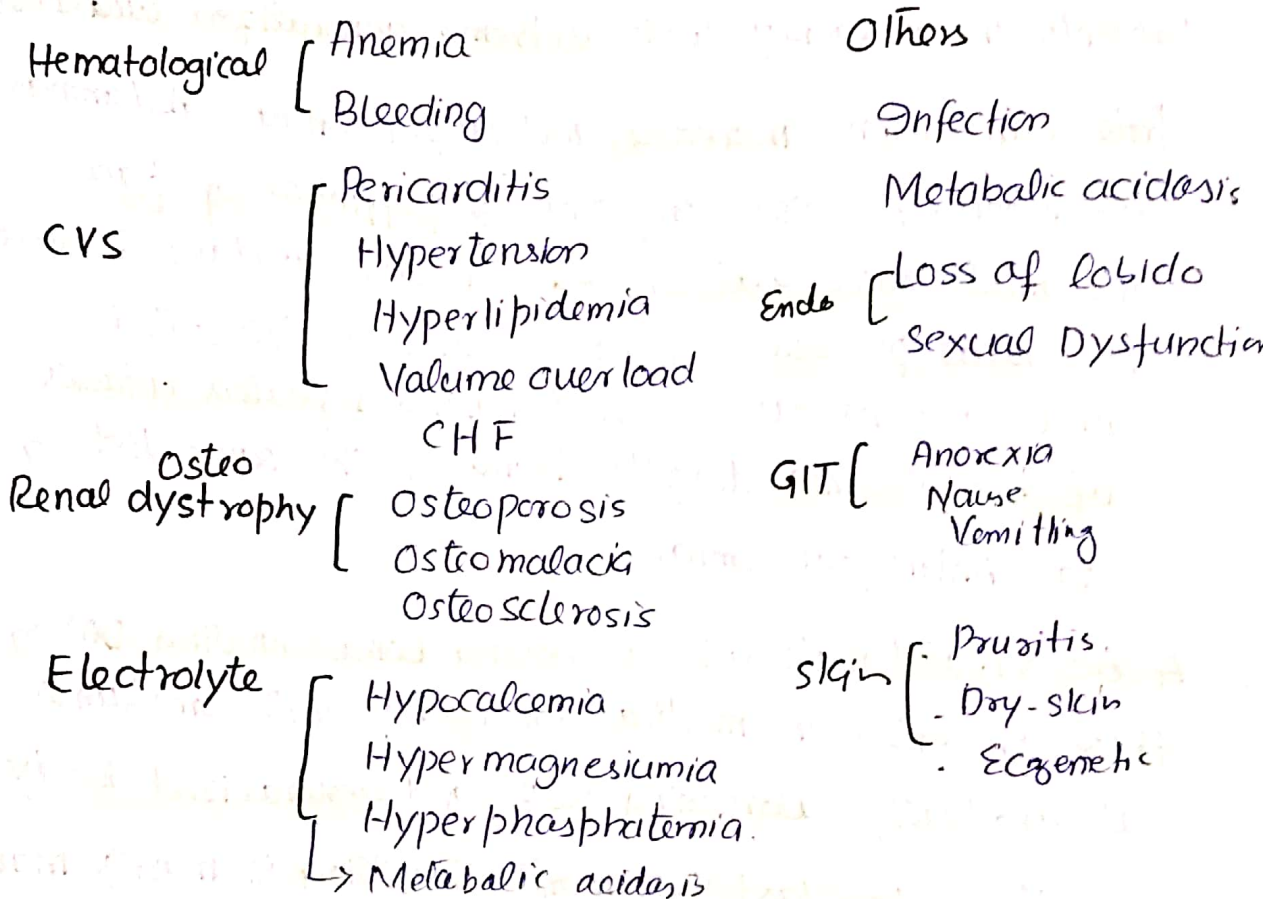 Hematological
Anemia
Bleeding
CVS
Pericarditis
Hypertension
Hyperlipidemia
Valume overload
CHF
Osteo
Renal dystrophy
Osteoporosis
Osteomalacia
Osteosclerosis
Electrolyte
Hypocalcemia.
Hypermagnesiumia
Hyperphasphatemia.
→ Metabalic acidosis
Others
Infection
Metabalic acidosis
Endo
Loss of lobido
Sexual Dysfunction
GIT
Anorexia
Nause.
Vomithing
Skin
. Pruritis.
. Dry-skin
. Eczemetic